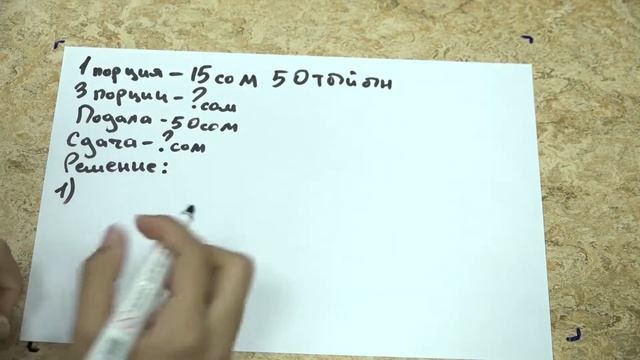 1 порция - 15 сом 50 тыйын
3 порции - ? сом
Подала - 50 сом
Сдача - ? сом
Решение:
1)